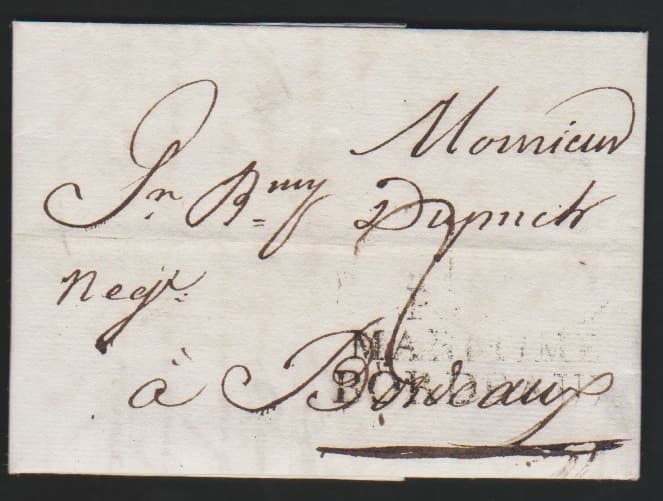 Monsieur
Pre. Bmy Dupuch
Negt.
à Bordeaux
MARITIME
BORDEAUX